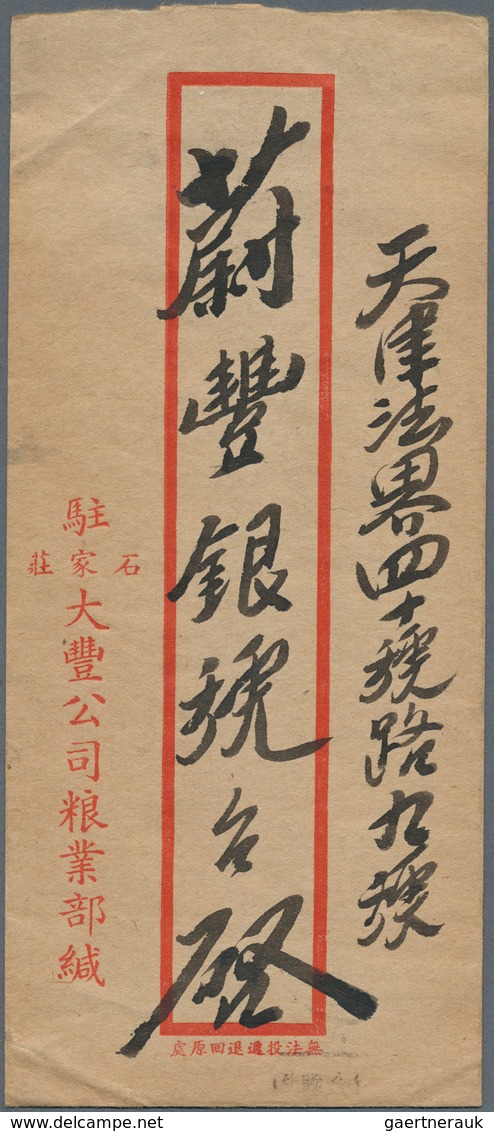 天津法界四十號路九號
蔚豐銀號台啓
駐石家莊大豐公司粮業部緘
無法投遞退回原處
gaertnerauk @ delcampe.net